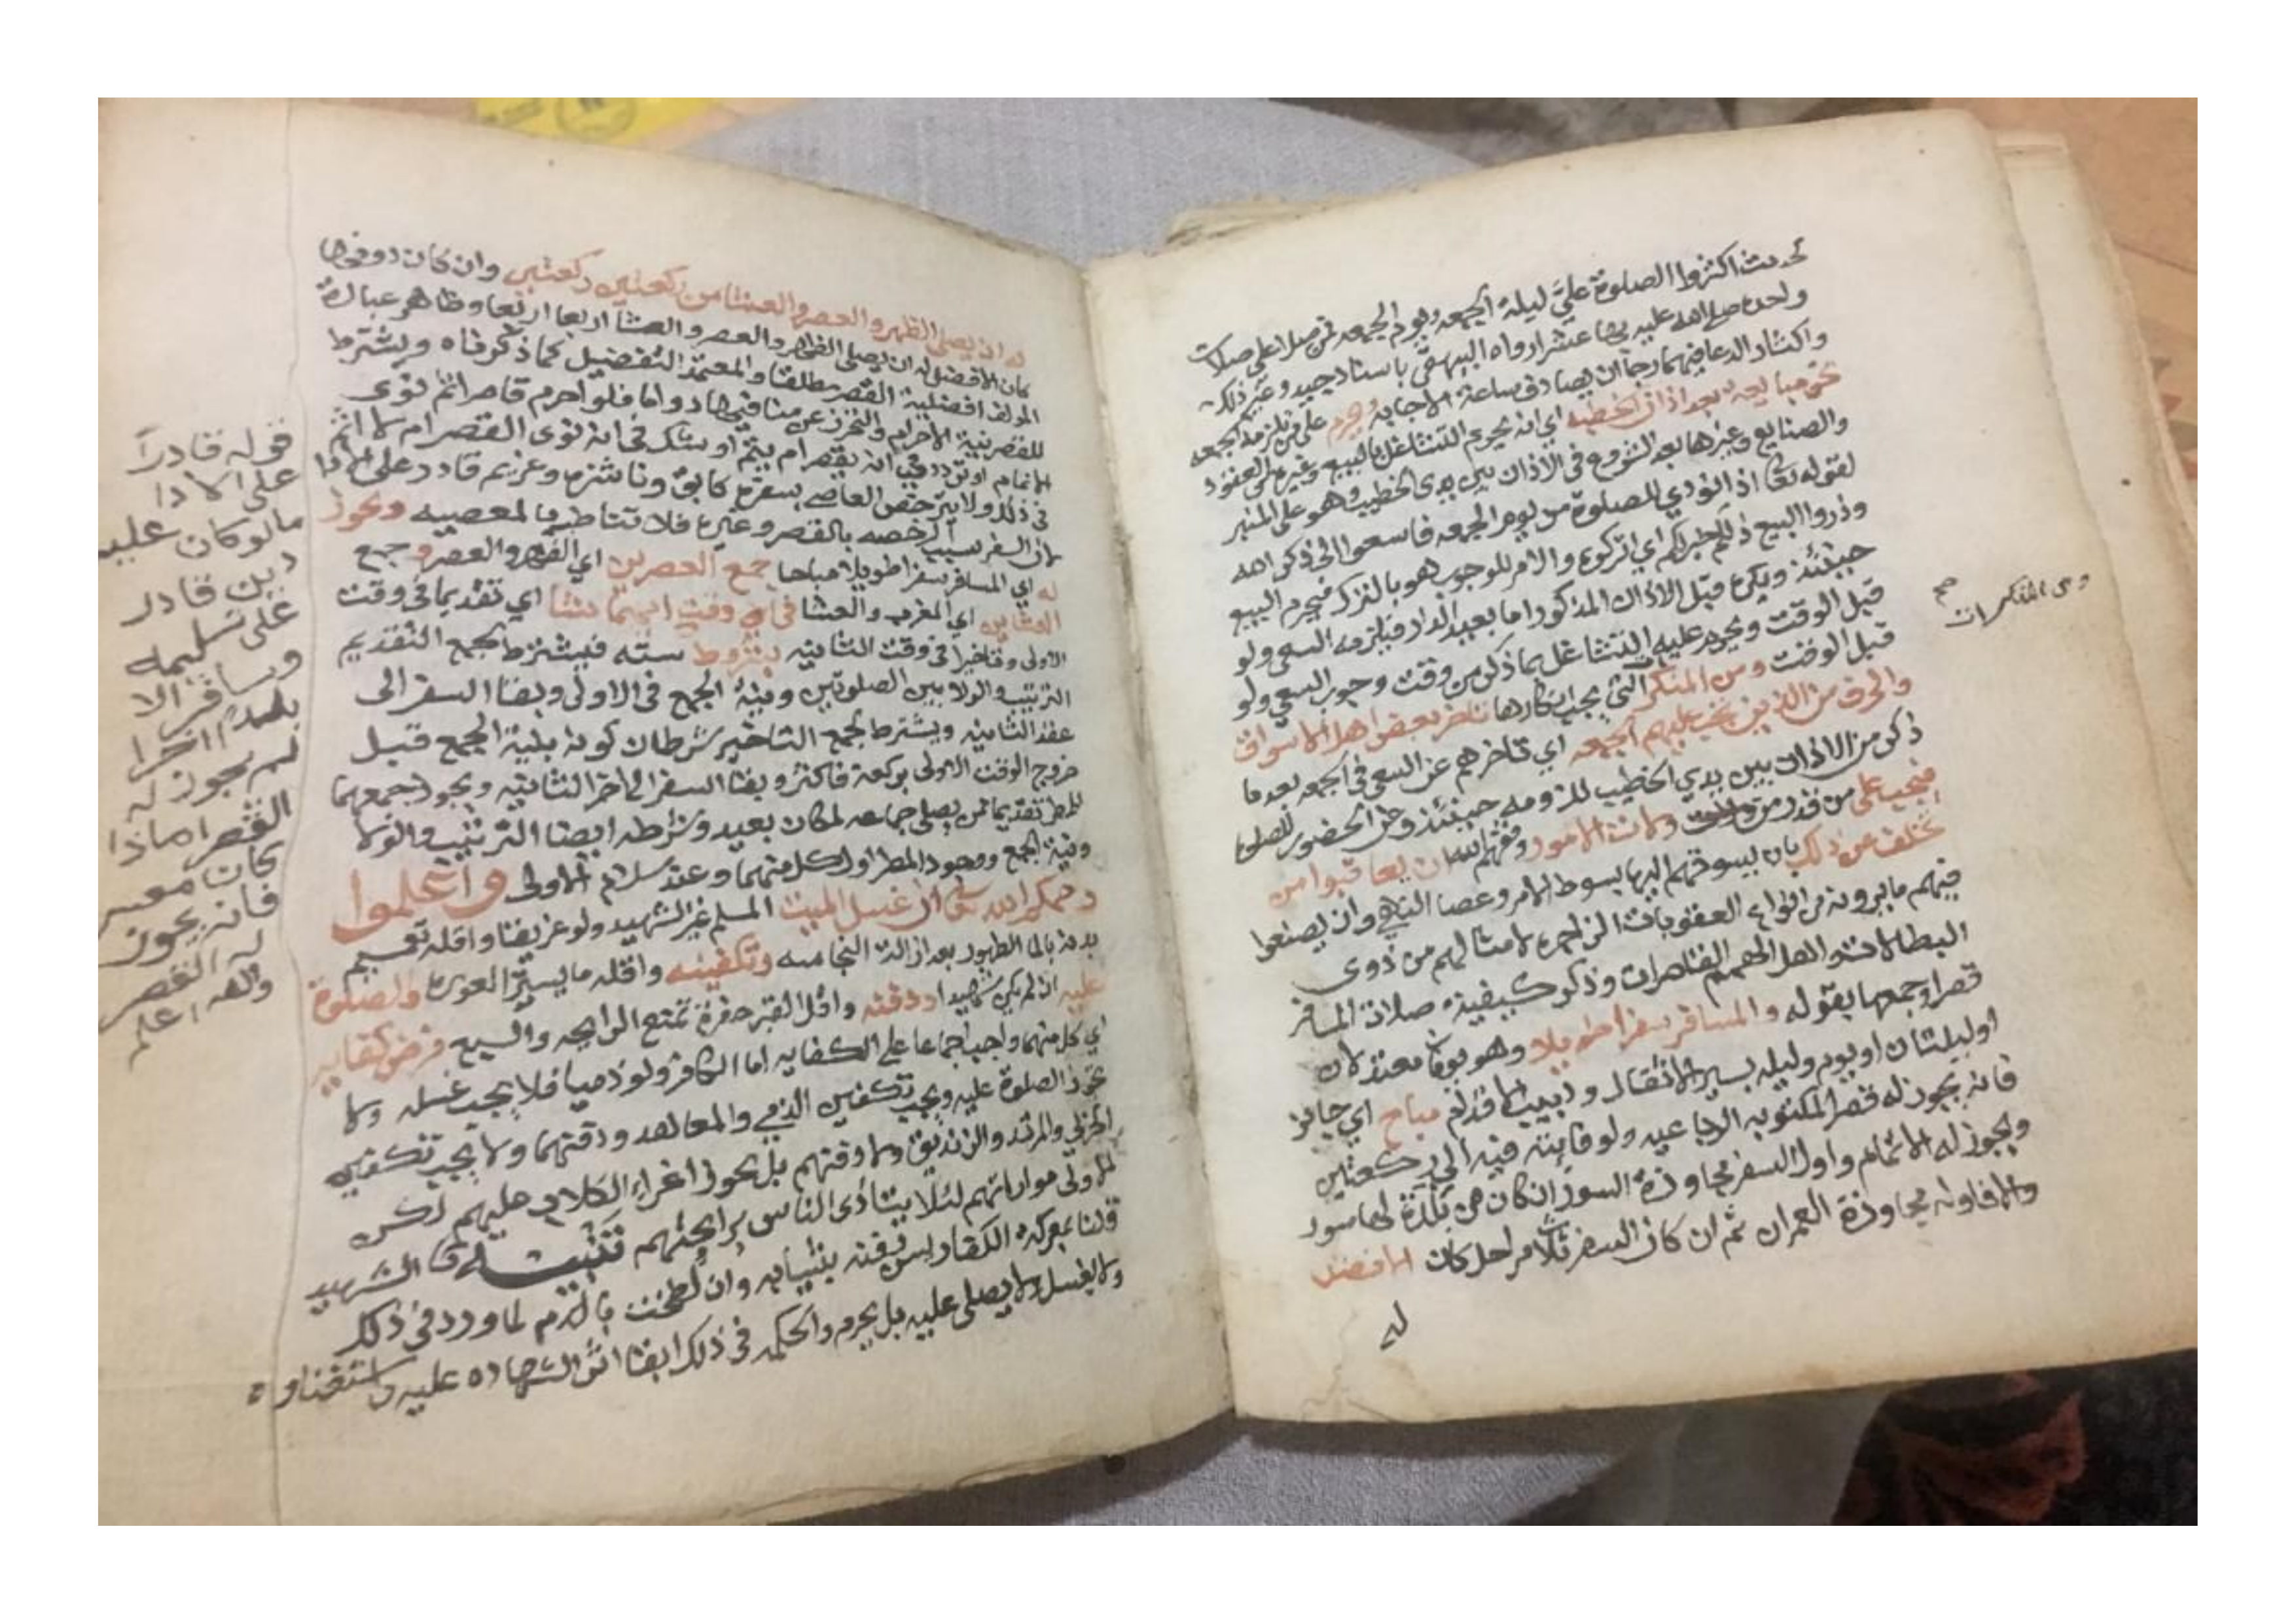 لحديث اكثروا الصلوة عليَّ ليلة الجمعه ويوم الجمعه فمن صلا علي صلات
واحده صلى الله عليه بها عشرا رواه البيهقي باسناد جيد وغير ذلك
واكثار الدعا فيهما رجا ان يصادف ساعة الاجابه ويحرم على من تلزمه الجمعه
نحو مبايعه بعد اذان الخطبه اي انه يحرم التشاغل بالبيع وغيره من العقود
والصنايع وغيرها بعد الشروع في الاذان بين يدي الخطيب وهو على المنبر
لقوله تعا اذا نودي للصلوة من يوم الجمعه فاسعوا الى ذكر الله
وذروا البيع ذلكم خير لكم اي اتركوه والامر للوجوب فهو بالترك فيحرم البيع
حينئذ ويكره قبل الاذان المذكور اما بعيد الدار فيلزمه السعي ولو
قبل الوقت ويحرم عليه التشاغل بما ذكر من وقت وجوب السعي ولو
قبل الوقت ومن المنكر التي يجب انكارها تاخر بعض اهل الاسواق
والحرف من الذين تجب عليهم الجمعه اي تاخرهم عن السعي في الجمعه بعد ما
ذكر من الاذان بين يدي الخطيب للزومه حينئذ وحق الحضور للصلوة
فيجب على من قدر من ولات الامور وفقهم الله ان يعاقبوا من
تخلف عن ذلك بان يسوقهم اليها بسوط الامر وعصا النهي وان يصنعوا
فيهم ما يرونه من انواع العقوبات الزاجره لامثالهم من ذوي
البطالات والهمم القاصرات وذكر كيفية صلاة المسافر
قصرا وجمعها بقوله والمسافر سفرا طويلا وهو يومان معتدلان
او ليلتان او يوم وليله بسير الاثقال ودبيب الاقدام مباح اي جائز
فانه يجوز له قصر المكتوبه الرباعيه ولو فائتة فيه الى ركعتين
ويجوز له الاتمام واول السفر مجاوزة السور ان كان من بلدة لها سور
والا فاوله مجاوزة العمران ثم ان كان السفر ثلاث مراحل كان الافضل
له
ومن المنكرات
صح
له ان يصلى الظهر والعصر والعشا من ركعتين ركعتين وان كان دونها
كان الافضل له ان يصلي الظهر والعصر والعشا اربعا اربعا وظاهر عبارة
المؤلف افضلية القصر مطلقا والمعتمد التفصيل كما ذكرناه ويشترط
للقصر نية الاحرام والتحرز عن منافيها دواما فلو احرم قاصرا ثم نوى
الاتمام او تردد في انه يقصر ام يتم او شك في انه نوى القصر ام لا اتم
في ذلك ولا يترخص العاصي بسفره كآبق وناشزه وغريم قادر على الادا
لان السفر سبب الرخصه بالقصر وغيره فلا تناط بالمعصيه ويجوز
له اي المسافر سفرا طويلا مباحا جمع العصرين اي الظهر والعصر وجمع
العشاين اي المغرب والعشا في اي وقت ايهما شئا اي تقديما في وقت
الاولى وتاخيرا في وقت الثانيه بشروط سته فيشترط لجمع التقديم
الترتيب والولا بين الصلوتين ونية الجمع في الاولى وبقا السفر الى
عقد الثانيه ويشترط لجمع التاخير شرطان كونه بنية الجمع قبل
خروج الوقت الاولى بركعة فاكثر وبقا السفر الى اخر الثانيه ويجوز جمعهما
للمطر تقديما لمن يصلي جماعه لمكان بعيد وشرطه ايضا الترتيب والولا
ونية الجمع ووجود المطر اول كل منهما وعند سلام الاولى واعلموا
رحمكم الله تعالى ان غسل الميت المسلم غير الشهيد ولو غريقا واقله تعميم
بدنه بالما الطهور بعد ازالة النجاسه وتكفينه واقله ما يستر العورة والصلوة
عليه ان لم يكن شهيدا ودفنه واقل القبر حفرة تمنع الرايحه والسبع فرض كفايه
اي كل منهما واجب اجماعا على الكفايه اما الكافر ولو ذميا فلا يجب غسله ولا
تجوز الصلوة عليه ويجب تكفين الذمي والمعاهد ودفنهما ولا يجب تكفين
الحربي والمرتد والزنديق ولا دفنهم بل يجوز اغراء الكلاب عليهم لكن
الاولى مواراتهم لئلا يتأذى الناس برايحتهم تنبيه الشهيد
قلنا بمعركة الكفار يسن دفنه بثيابه وان لطخت بالدم لما ورد في ذلك
ولا يغسل ولا يصلى عليه بل يحرم والحكمه في ذلك ابقا اثر الشهاده عليه واستغناوه
قوله قادراً
على الادا
مالو كان عليه
دين قادر
على تسليمه
وسافر الا
بلدة اخرا
لم يجوز له
القصر اما اذا
كان معسر
فانه يجوز
له القصر
والله اعلم